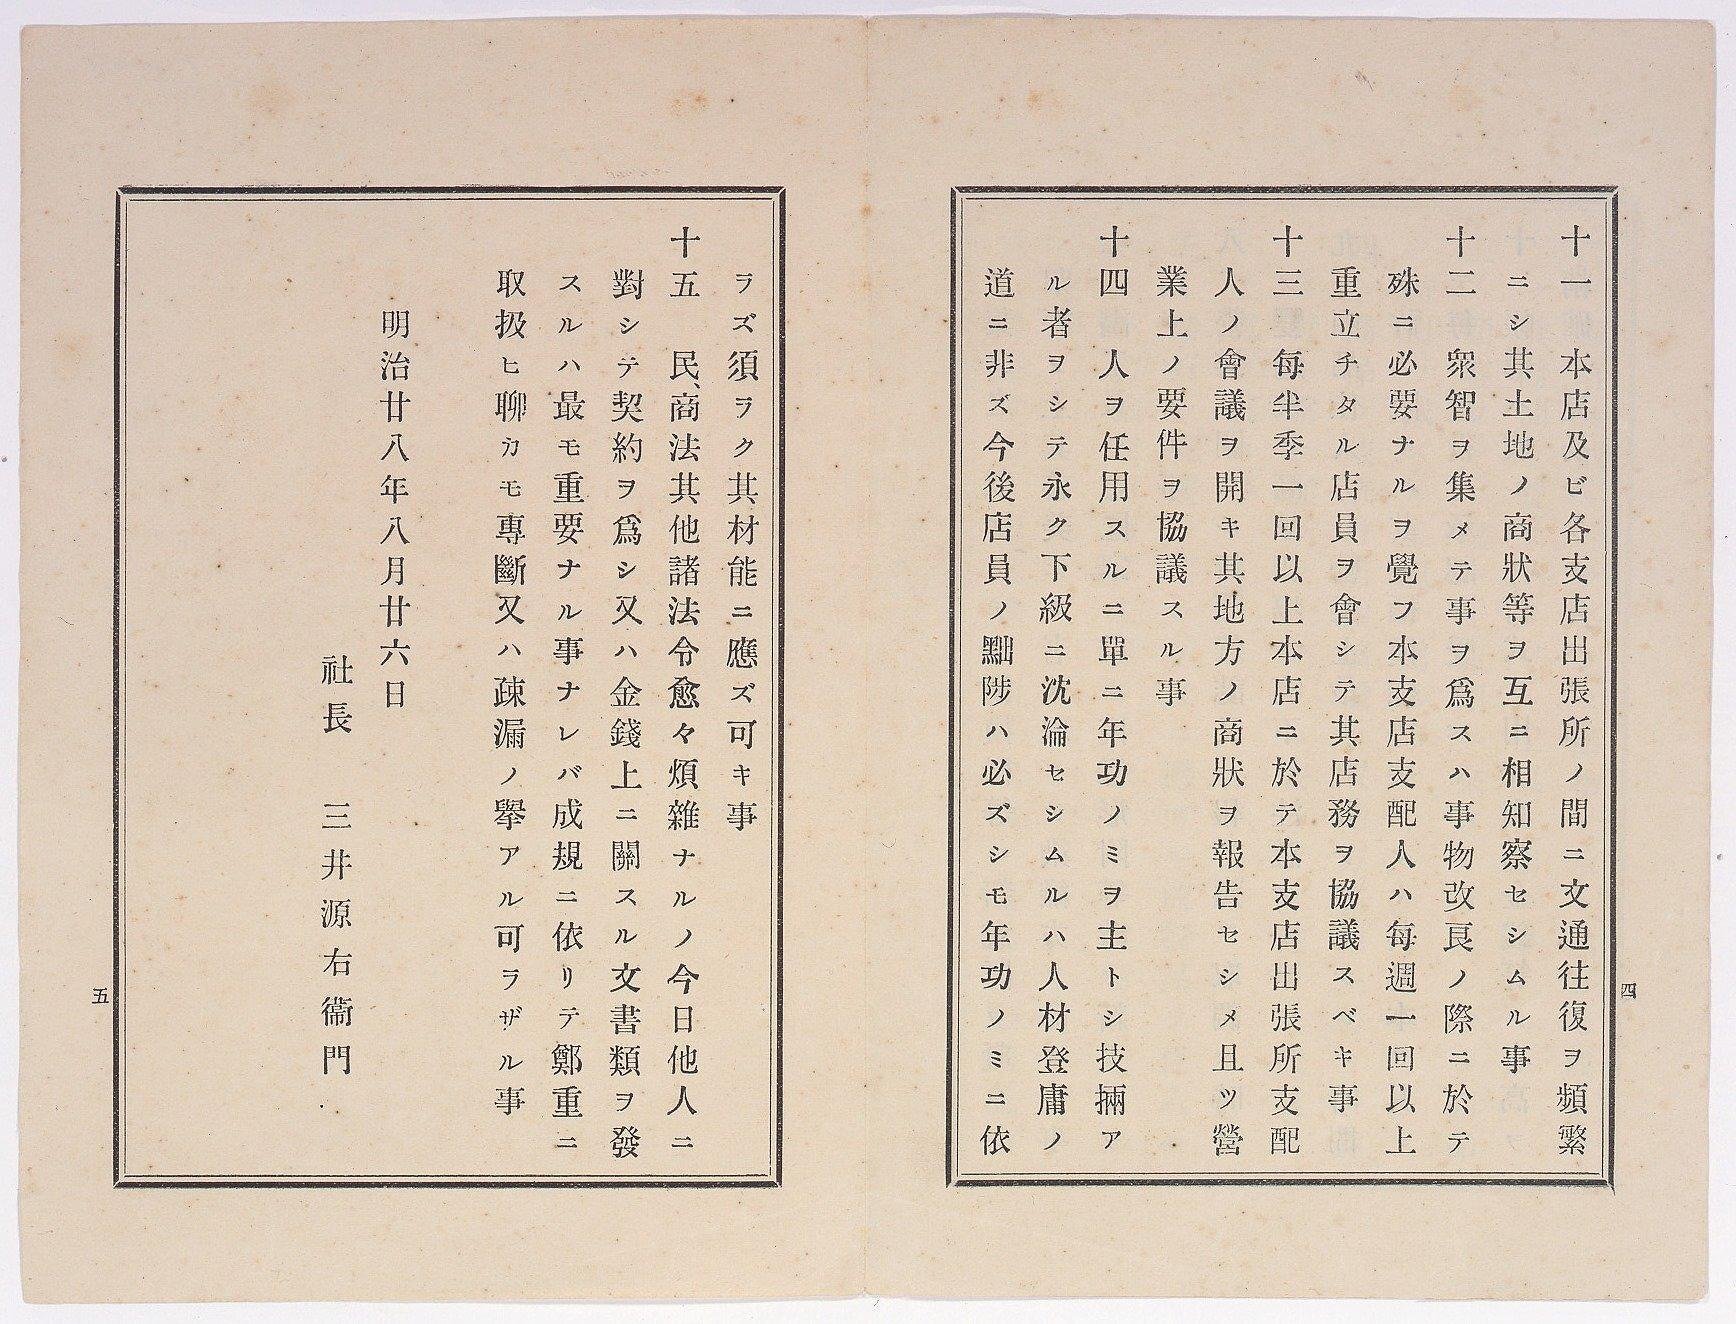 十一 本店及ビ各支店出張所ノ間ニ文通往復ヲ頻繁
ニシ其土地ノ商狀等ヲ互ニ相知察セシムル事
十二 衆智ヲ集メテ事ヲ爲スハ事物改良ノ際ニ於テ
殊ニ必要ナルヲ覺フ本支店支配人ハ每週一回以上
重立チタル店員ヲ會シテ其店務ヲ協議スベキ事
十三 每半季一回以上本店ニ於テ本支店出張所支配
人ノ會議ヲ開キ其地方ノ商狀ヲ報告セシメ且ツ營
業上ノ要件ヲ協議スル事
十四 人ヲ任用スルニ單ニ年功ノミヲ主トシ技倆ア
ル者ヲシテ永ク下級ニ沈淪セシムルハ人材登庸ノ
道ニ非ズ今後店員ノ黜陟ハ必ズシモ年功ノミニ依
四
ラズ須ラク其材能ニ應ズ可キ事
十五 民、商法其他諸法令愈々煩雜ナルノ今日他人ニ
對シテ契約ヲ爲シ又ハ金錢上ニ關スル文書類ヲ發
スルハ最モ重要ナル事ナレバ成規ニ依リテ鄭重ニ
取扱ヒ聊カモ專斷又ハ疎漏ノ擧アル可ラザル事
明治廿八年八月廿六日
社長 三井源右衞門
五